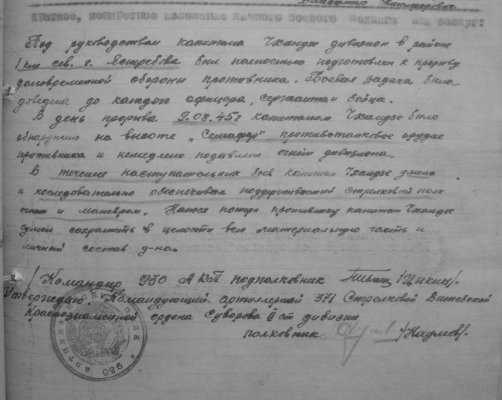 Краткое, конкретное изложение личного боевого подвига или заслуг:
Под руководством капитана Чхаидзе дивизион в районе
1 км сев. д. Ястребова был полностью подготовлен к прорыву
долговременной обороны противника. Боевая задача была
доведена до каждого офицера, сержанта и бойца.
В день прорыва 9.08.45г капитаном Чхаидзе было
обнаружено на высоте „Семафор" противотанковое орудие
противника и немедлено подавлено огнём дивизиона.
В течение наступательных боев капитан Чхаидзе умело
и последовательно обеспечивал поддерживаемый стрелковый полк
огнём и маневром. Нанося потери противнику капитан Чхаидзе
сумел сохранить в целости всю материальную часть и
личный состав д-на.
Командир 930 АКП подполковник /Цикин/.
Утверждаю: Командующий артиллерией 371 Стрелковой Витебской
Краснознаменной ордена Суворова II ст дивизии
полковник /Наумов/.